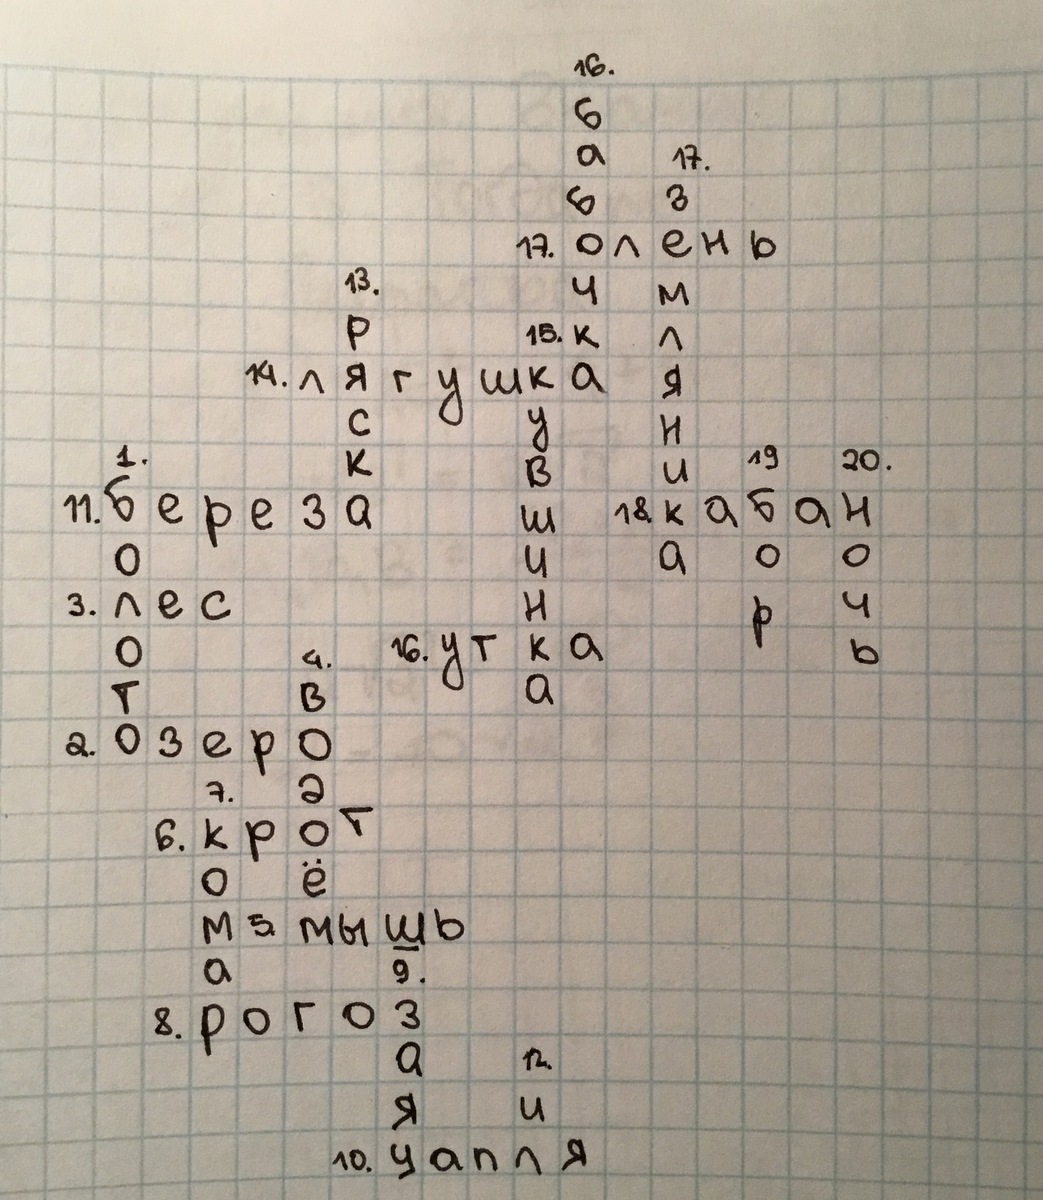 16.
б
а 17.
б з
17. олень
13. ч м
р 15. к л
14. лягушка я
с у н
1. к в и 19 20.
11. береза ш 18 кабан
о и а о о
3. лес н р ч
о 4. 16. утка ь
т в а
2. озеро
7. д
6. крот
о ё
м 5. мышь
а 9.
8. рогоз
а 12.
я и
10. цапля